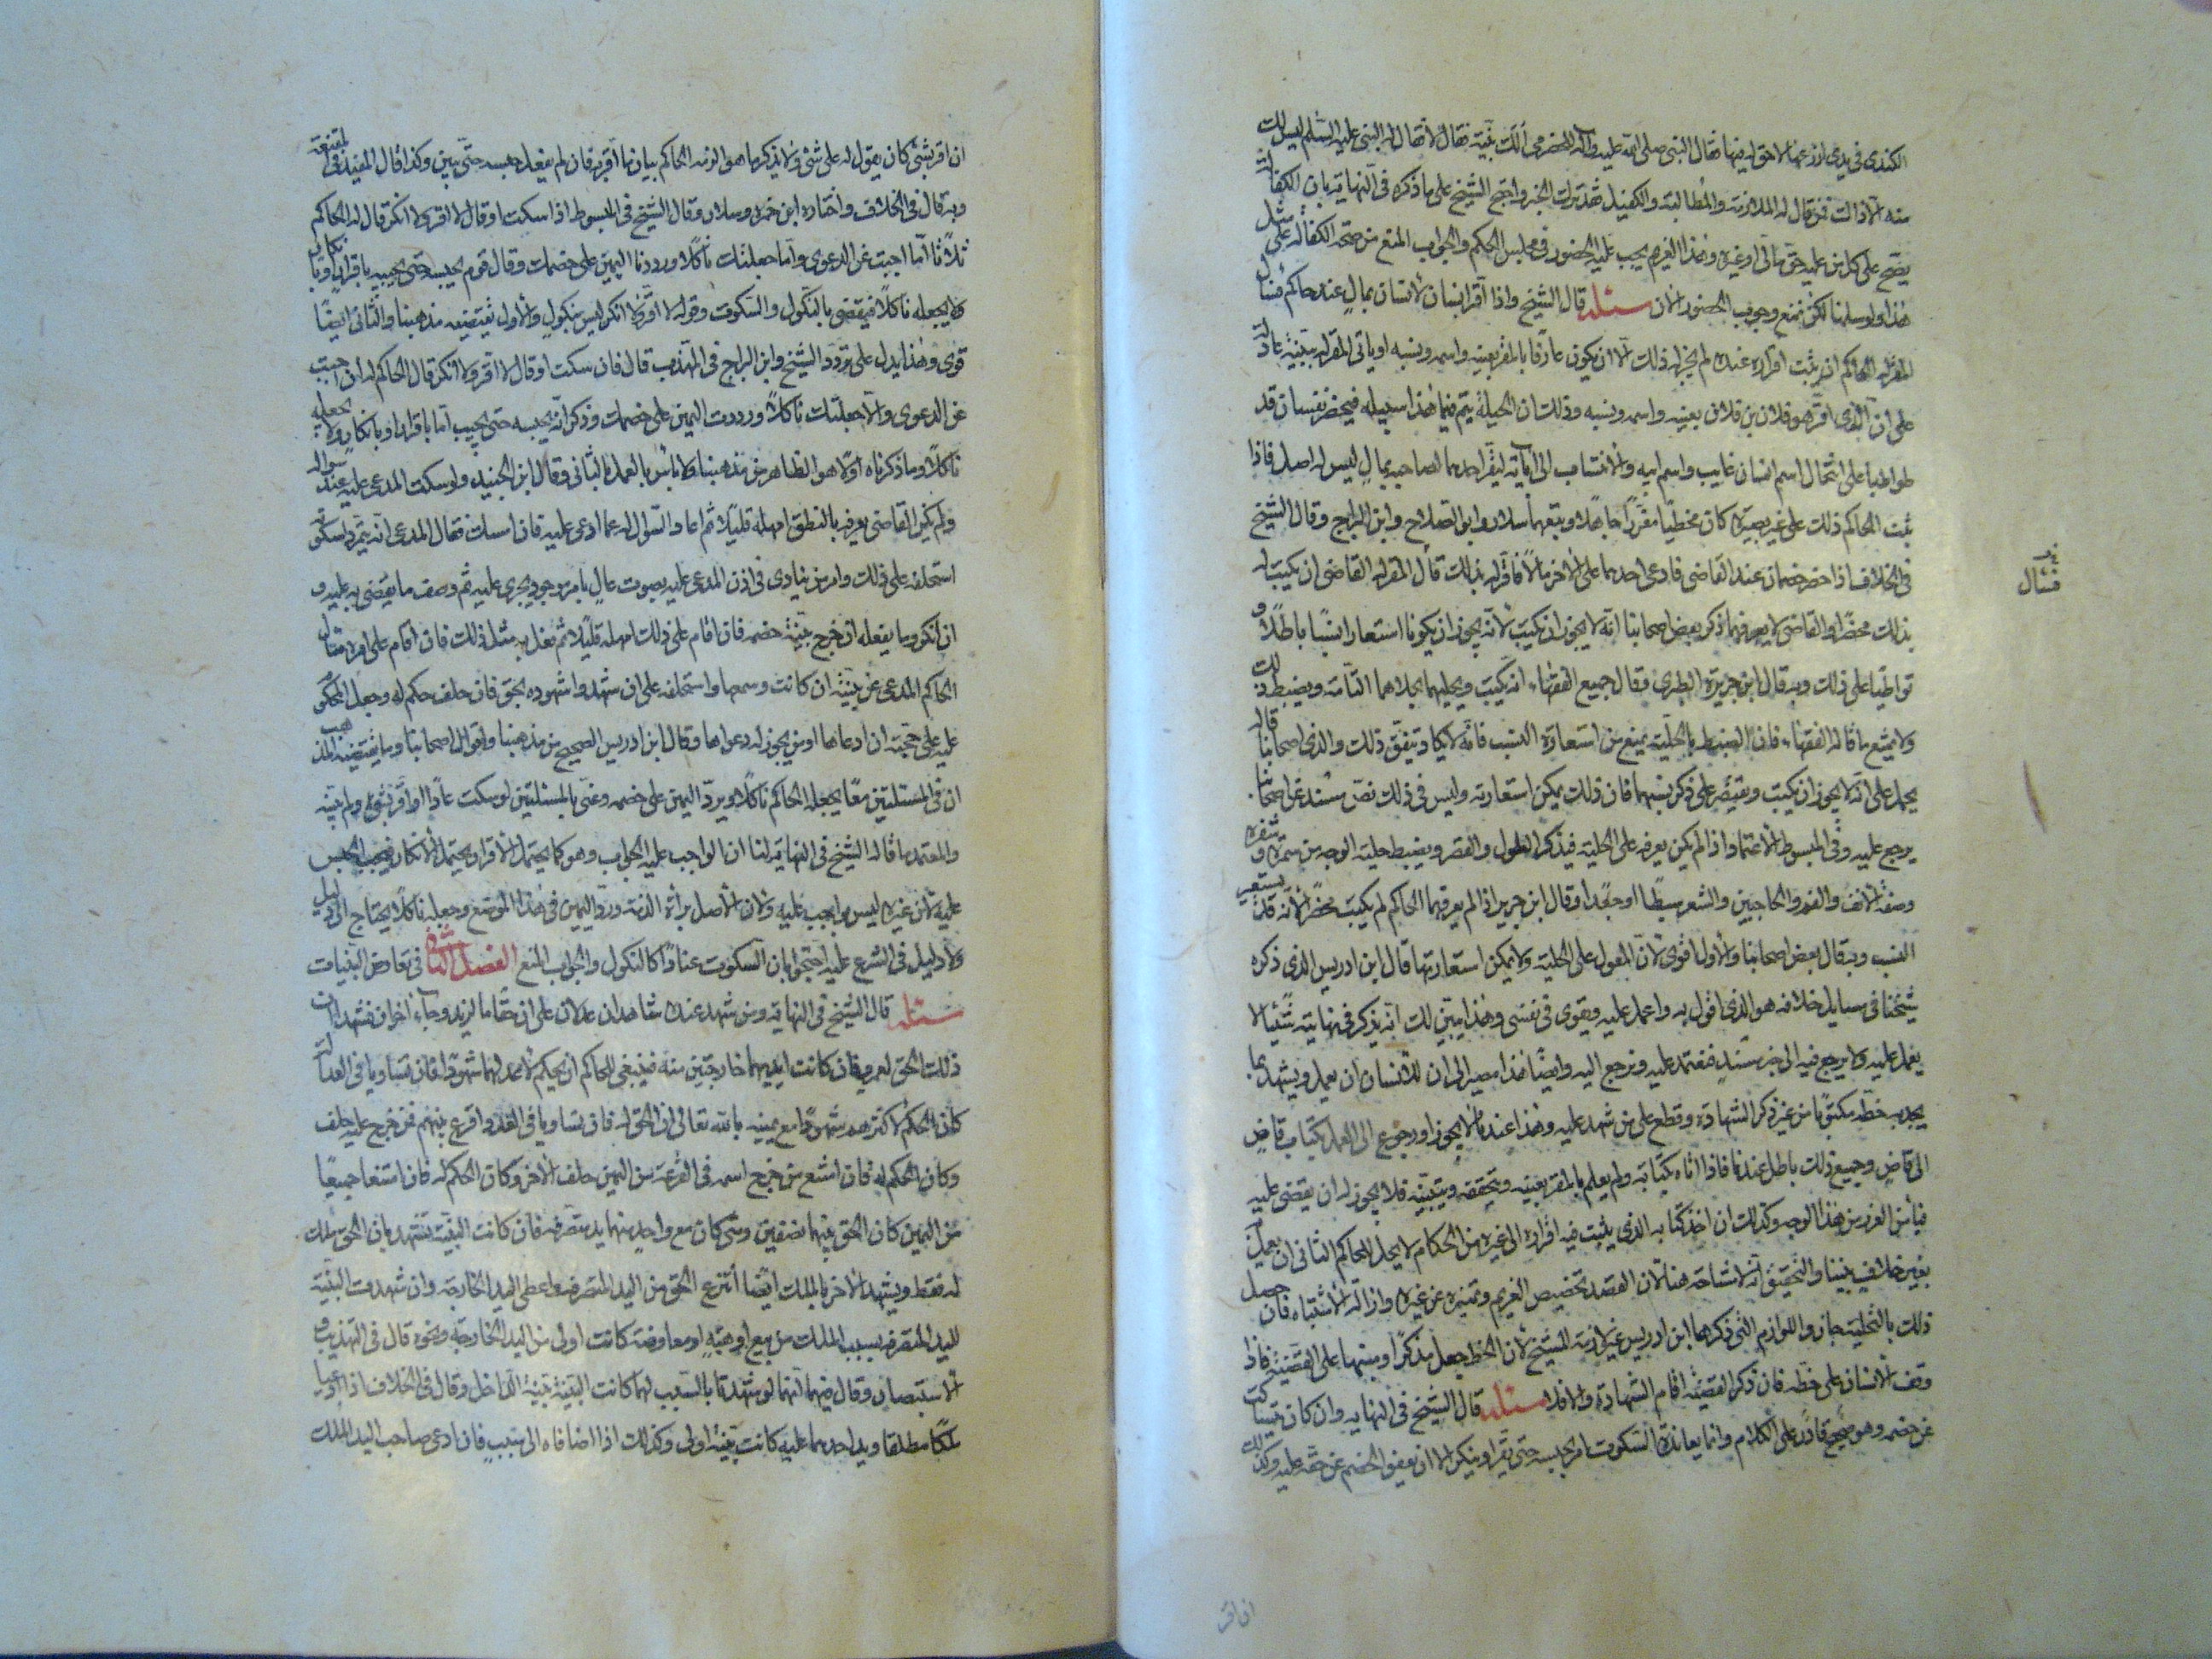 الكندى فى يدى ازرعها لا حق له فيها فقال النبى صلى الله عليه وآله للحضرمى ألك بينة فقال لا فقال له النبى عليه السلم ليس لك
منه الا ذلك فمن قال له الملازمة والمطالبة والكفيل فقد ترك الخبر واحتج الشيخ على ما ذكره فى النهاية بان الكفالة
يصح على كل من عليه حق مالى او غيره وهذا الغريم يجب عليه الحضور فى مجلس الحكم والجواب المنع من صحة الكفالة على مثل
هذا ولو سلمنا لكن نمنع وجوب الحضور الان مسئلة قال الشيخ واذا اقر انسان لانسان بمال عند حاكم فسئال
المقر له الحاكم ان يثبت اقراره عنده لم يجز له ذلك الا ان يكون عارفا بالمقر بعينه واسمه ونسبه او ياتى المقر له ببينة عادلة
على ان الذى اقر هو فلان بن فلان بعينه واسمه ونسبه وذلك ان الحيلة يتم فيما هذا سبيله فيحضر نفسان قد
تواطيا على انتحال اسم انسان غايب واسم ابيه والانتساب الى آبائه ليقر احدهما لصاحبه بمال ليس له اصل فاذا
ثبت الحاكم ذلك على غير بصيرة كان مخطيا مغررا جاهلا وتبعهما سلار وابو الصلاح وابن البراج وقال الشيخ
فى الخلاف اذا حضر خصمان عند القاضى فادعى احدهما على الاخر مالا فاقر له بذلك فسأل المقر له القاضى ان يكتب له
بذلك محضرا والقاضى لا يعرفهما ذكر بعض اصحابنا انه لا يجوز ان يكتب لانه يجوز ان يكونا استعارا نسبا باطلا و
تواطيا على ذلك وبه قال ابن جرير الطبرى وقال جميع الفقهاء انه يكتب ويحليهما بحلاهما التامة ويضبط ذلك
ولا يمتنع ما قاله الفقهاء فان الضبط بالحلية يمنع من استعارة النسب فانه لا يكاد يتفق ذلك والذى قاله اصحابنا
يحمل على انه لا يجوز ان يكتب ويقتصر على ذكر نسبهما فان ذلك يمكن استعارته وليس فى ذلك نص مسند عن اصحابنا
يرجع عليه وفى المبسوط الاعتماد اذا لم يكن يعرفه على الحلية فيذكر الطول والقصر ويضبط حلية الوجه من سمرة وشقرة و
وصفة الانف والفم والحاجبين والشعر سبطا او جعدا وقال ابن جرير اذا لم يعرفهما الحاكم لم يكتب محضرا لانه قد يستعير
النسب وبه قال بعض اصحابنا والاول اقوى لان المعول على الحلية ولا يمكن استعارتها قال ابن ادريس الذى ذكره
شيخنا فى مسايل خلافه هو الذى اقول به واعمل عليه ويقوى فى نفسى وهذا يبين لك انه يذكر فى نهايته شيئا لا
يعمل عليه ولا يرجع فيه الى خبر مسند فنعتمد عليه ونرجع اليه وايضا فهذا مصير الى ان للانسان ان يعمل ويشهد بما
يجد به خطه مكتوبا من غير ذكر الشهادة وقطع على من شهد عليه وهذا عندنا لا يجوز او رجوع الى العمل بكتاب قاض
الى قاض وجميع ذلك باطل عندنا فاذا اتاه بكتابه ولم يعلم بالمقر بعينه وتحققه وتبينه فلا يجوز له ان يقضى عليه
فيأمن الغرر من هذا الوجه وكذلك ان اخذ كتابه الذى يثبت فيه اقراره الى غيره من الحكام لا يحل للحاكم الثانى ان يعمل به
بغير خلاف بيننا والتحقيق انه لا مشاحة هنا لان القصد تخصيص الغريم وتميزه عن غيره وازالة الاشتباه فان حصل
ذلك بالتحلية جاز واللوازم التى ذكرها ابن ادريس غير لازمة للشيخ لان الخط جعل مذكرا ومنبها على القضية فاذا
وقف الانسان على خطه فان ذكر القضية اقام الشهادة والا فلا مسئلة قال الشيخ فى النهاية وان كان يتساكت
عن خصمه وهو صحيح قادر على الكلام وانما يعانده السكوت امر بحبسه حتى يقر او ينكر الا ان يعفو الخصم عن حقه عليه وكذلك
ان اقر
فسئال
ان اقر بشىء كان يقول له على شىء ولا يذكر ما هو الزمه الحاكم بيان ما اقر به فان لم يفعل حبسه حتى يبين وكذا قال المفيد فى المقنعة
وبه قال فى الخلاف واختاره ابن حمزة وسلار وقال الشيخ فى المبسوط اذا سكت او قال لا اقر ولا انكر قال له الحاكم
ثلاثا اما اجبت عن الدعوى واما جعلناك ناكلا ورددنا اليمين على خصمك وقال قوم يحبسه حتى يجيبه باقرار او بانكار
ولا يجعله ناكلا فيقضى بالنكول والسكوت وقوله لا اقر ولا انكر ليس بنكول والاول يقتضيه مذهبنا والثانى ايضا
قوى وهذا يدل على تردد الشيخ وابن البراج فى المهذب قال فان سكت او قال لا اقر ولا انكر قال الحاكم له ان اجبت
عن الدعوى والا جعلتك ناكلا ورددت اليمين على خصمك وذكر انه يحبسه حتى يجيب اما باقرار او بانكار ولا يجعله
ناكلا وما ذكرناه اولا هو الظاهر من مذهبنا ولا بأس بالعمل بالثانى وقال ابن الجنيد ولو سكت المدعى عليه عند سواله
ولم يكن القاضى يعرفه بالنطق امهله قليلا ثم اعاد السوال له عما ادعى عليه فان امسك فقال المدعى انه يتمرد بسكوته
استحلفه على ذلك وامر من ينادى فى اذن المدعى عليه بصوت عال بامر وجود يجرى عليه ثم وصف ما يقضى به عليه و
ان انكر وما يفعله ان خرج بينة خصمه فان اقام على ذلك امهله قليلا ثم فعل به مثل ذلك فان اقام على امره سئال
الحاكم المدعى عن بينته ان كانت وسمعها واستحلفه على ان شهد واشهوده بحق فان حلف حكم له وجعل المحكوم
عليه على حجته ان ادعاها او من يجوز له دعواها وقال ابن ادريس الصحيح من مذهبنا واقوال اصحابنا وما يقتضيه المذهب
ان فى المسئلتين معا يجعله الحاكم ناكلا ويرد اليمين على خصمه وعنى بالمسئلتين لو سكت عنادا او اقر بشىء ولم يبينه
والمعتمد ما قاله الشيخ فى النهاية لنا ان الواجب عليه الجواب وهو كما يحتمل الاقرار يحتمل الانكار فيجب الحبس
عليه لان غيره ليس بواجب عليه ولان الاصل براءة الذمة ورد اليمين فى هذا الموضع وجعله ناكلا يحتاج الى دليل
ولا دليل فى الشرع عليه احتجوا بان السكوت عنادا كالنكول والجواب المنع الفصل الثالث فى تعارض البينات
مسئلة قال الشيخ فى النهاية ومن شهد عنده شاهدان عدلان على ان حقا ما لزيد وجاء آخران فشهدا ان
ذلك الحق لعمرو فان كانت ايديهما خارجتين منه فينبغى للحاكم ان يحكم لاعدلهما شهودا فان تساويا فى العدالة
كان الحكم لاكثرهم شهودا مع يمينه بالله تعالى ان الحق له فان تساويا فى العدد اقرع بينهم فمن خرج عليه حلف
وكان الحكم له فان امتنع من خرج اسمه فى القرعة من اليمين حلف الاخر وكان الحكم له فان امتنعا جميعا
من اليمين كان الحق بينهما نصفين ومتى كان مع واحد منهما يد متصرفه فان كانت البينة تشهد بان الحق ملك
له فقط ويشهد الاخر بالملك ايضا انتزع الحق من اليد المتصرفه واعطى اليد الخارجة وان شهدت البينة
لليد المتصرفه بسبب الملك من بيع او هبة او معاوضة كانت اولى من اليد الخارجة ونحوه قال فى التهذيب و
الاستبصار وقال فيهما انهما لو شهدتا بالسبب لهما كانت البينة بينة الداخل وقال فى الخلاف اذا ادعيا
ملكا مطلقا ويد احدهما عليه كانت بينته اولى وكذلك اذا اضافاه الى سبب فان ادعى صاحب اليد الملك